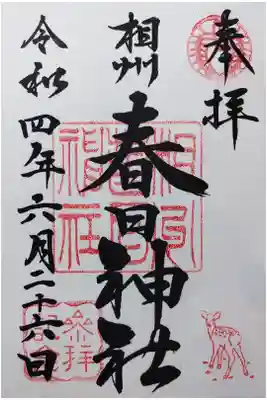 奉拝
相州
春日神社
令和四年六月二十六日
参拝